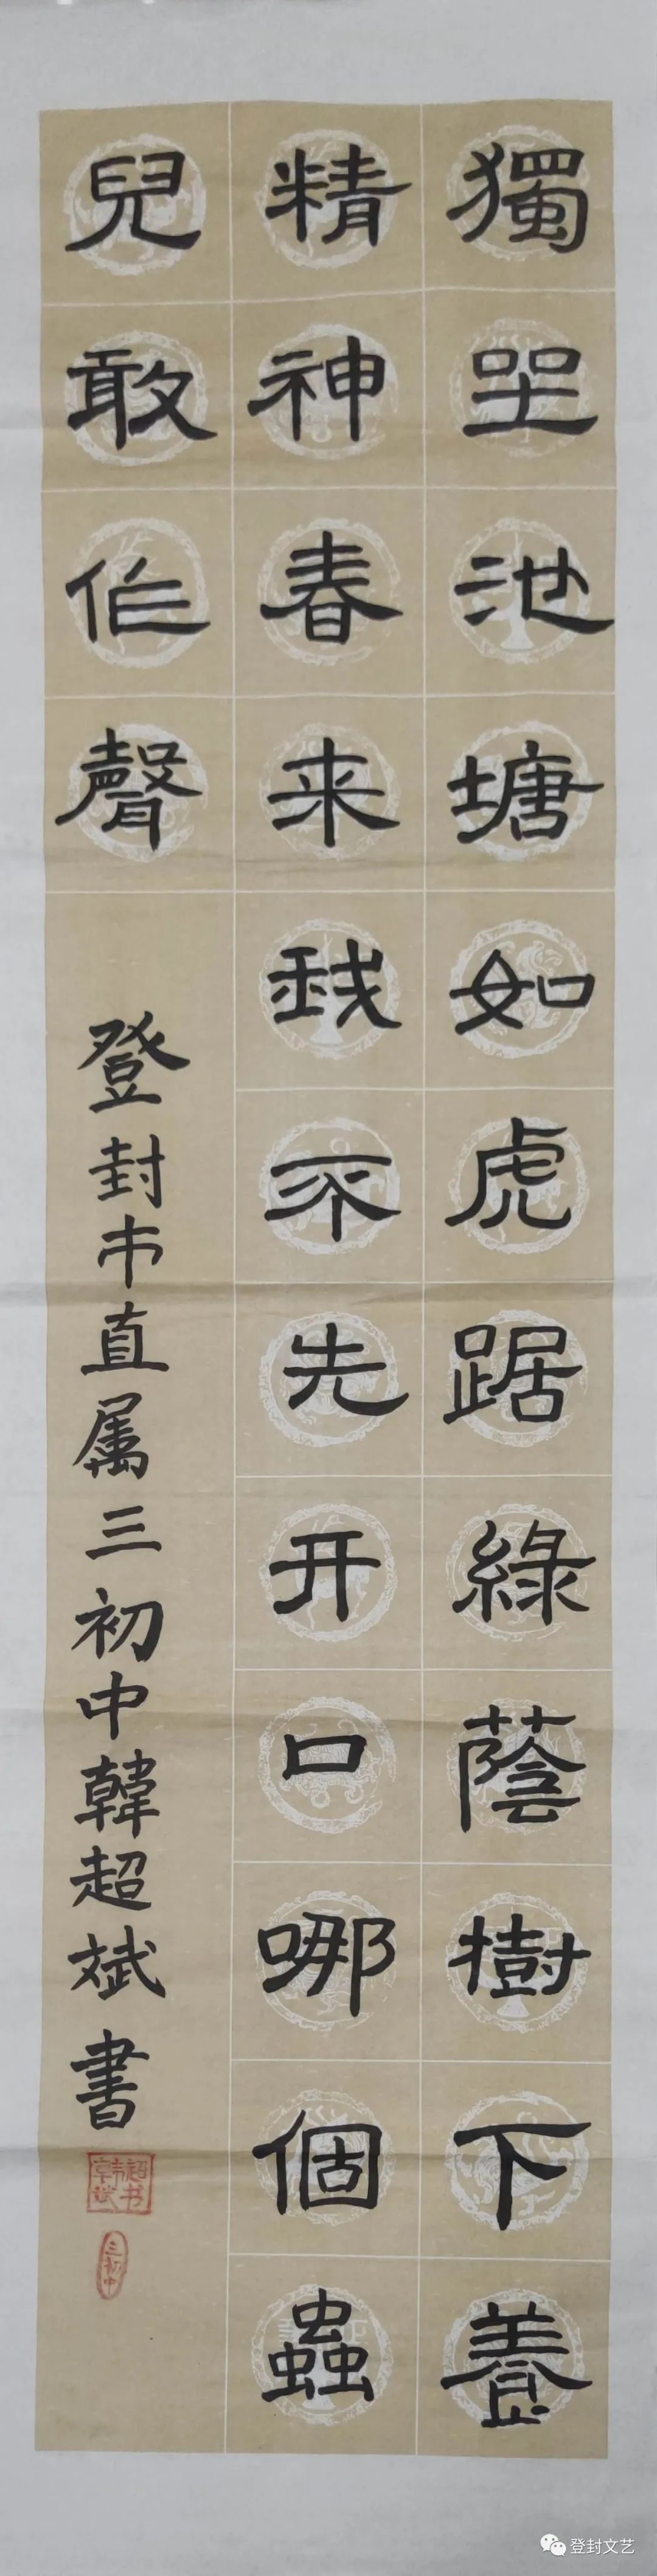 獨坐池塘如虎踞綠蔭樹下養
精神春来我不先开口哪個蟲
兒敢作聲
登封市直属三初中韓超斌書
韩超斌书
三初中
登封文艺